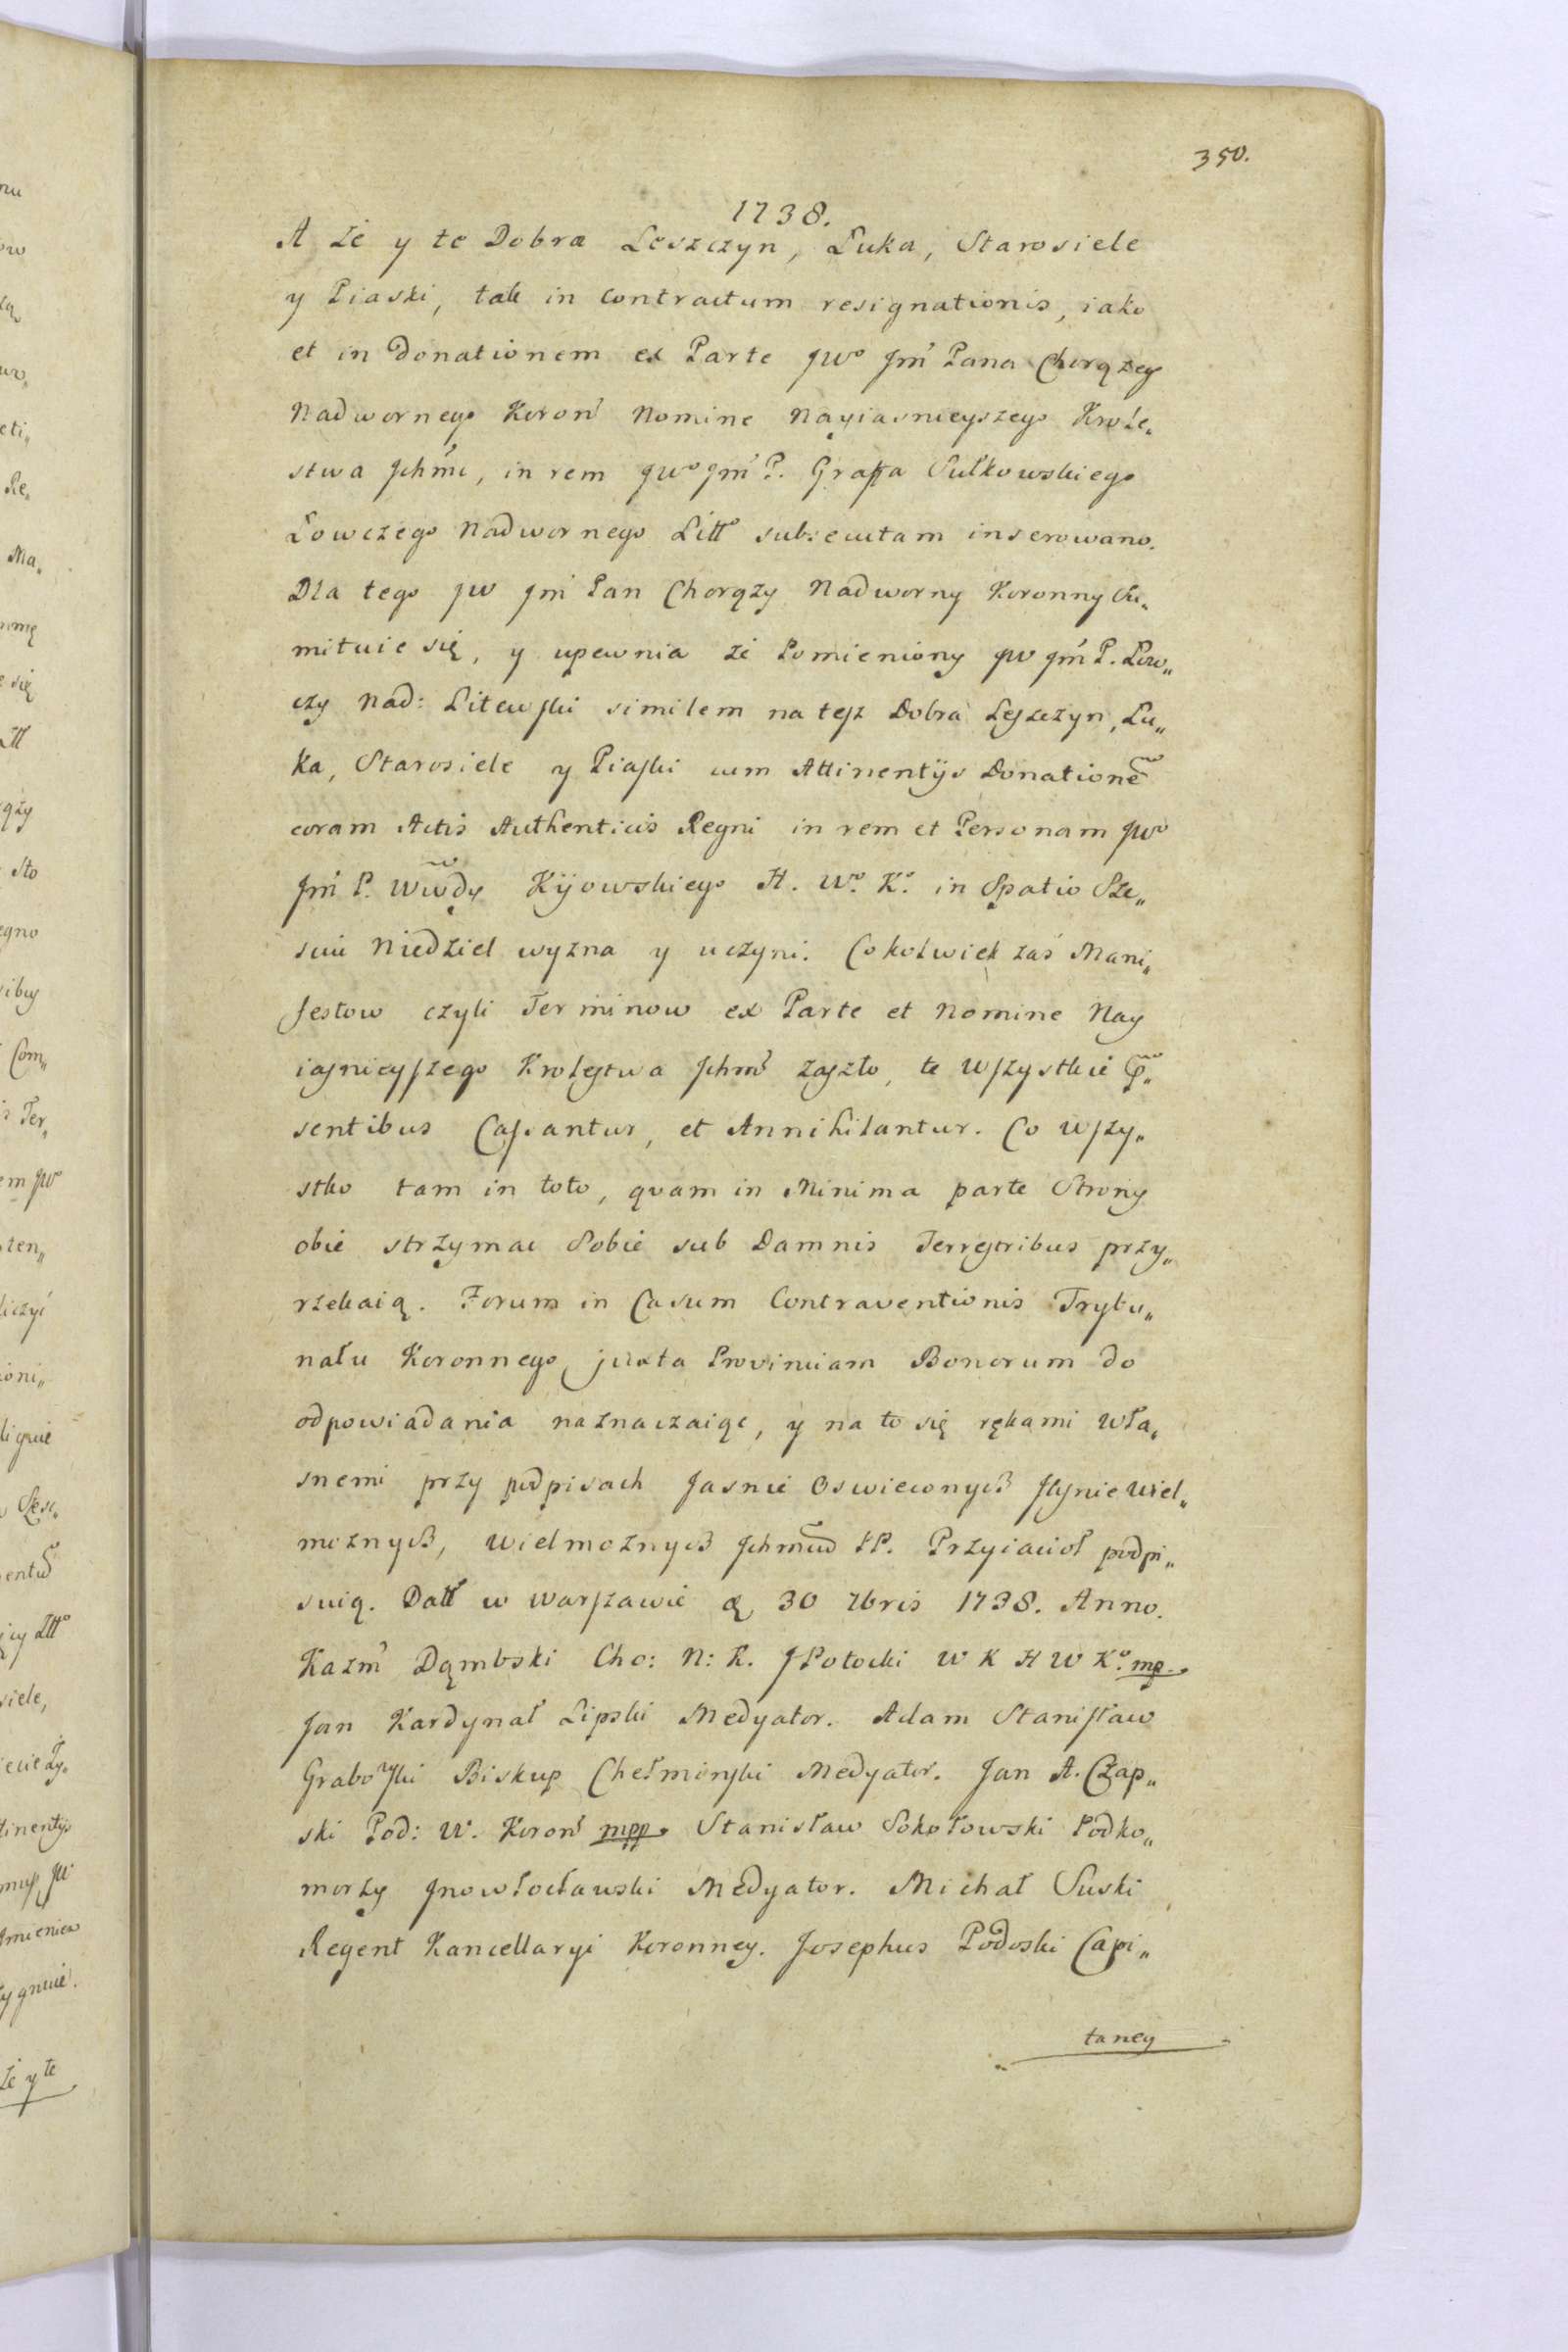 350.
1738.
A że y te Dobra Leszczyn, Łuka, Starosiele
y Piaski, tak in Contractum resignationis, iako
et in Donationem ex Parte JWo Jm̃ Pana Chorązego
Nadwornego Koronͬ Nomine Nayiasnieyszego Krole„
stwa Jchm̃ci, in rem JWo Jm̃ P. Graffa Sułkowskiego
Łowczego Nadwornego Littͦ subsecutam inserowano.
Dla tego JW Jm̃ Pan Chorązy Nadworny Koronny Su„
mituie się, y upewnia że Pomieniony JW Jm̃ P. Łow„
czy Nad: Litewski similem na tesz Dobra Leszczyn, Łu„
ka, Starosiele y Piaski cum Attinentÿs Donationẽ
coram Actis Authenticis Regni in rem et Personam JWo
Jm̃ P. Ww̃dy Kÿowskiego H. Wͦ. Kͦ. in Spatio Sze„
sciu Niedziel wyzna y uczyni. Cokolwiek zaś Mani„
festow czyli Terminow ex Parte et Nomine Nay
iasnieyszego Krolestwa Jchm̃ zaszło, te wszystkie p̃„
sentibus Cassantur, et Annihilantur. Co wszy„
stko tam in toto, quam in Minima parte Strony
obie strzymac Sobie sub Damnis Terrestribus przy„
rzekaią. Forum in Casum Contraventionis Trybu„
nału Koronnego juxta Provinciam Bonorum do
odpowiadania naznaczaiąc, y na to się rękami wła„
snemi przy podpisach Jasnie Oswieconych Jasnie Wiel„
moznych, Wielmoznych Jchmciͦw PP. Przyiacioł podpi„
suią. Datt w Warszawie d 30 7bris 1738. Anno.
Kazm̃ Dąmbski Cho: N: K. JPotocki W K H W Kͦ. mp.
Jan Kardynał Lipski Medyator. Adam Stanisław
Grabowski Biskup Chełminski Medyator. Jan A. Czap„
ski Pod: W. Koronͬ mpp. Stanisław Sokołowski Podko„
morzy Jnowłocławski Medyator. Michał Suski
Regent Kancellaryi Koronney. Josephus Podoski Capi„
taney